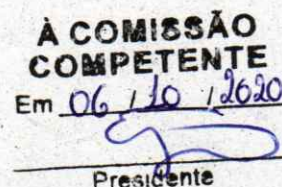 À COMISSÃO
COMPETENTE
Em 06 / 10 / 2020
Presidente